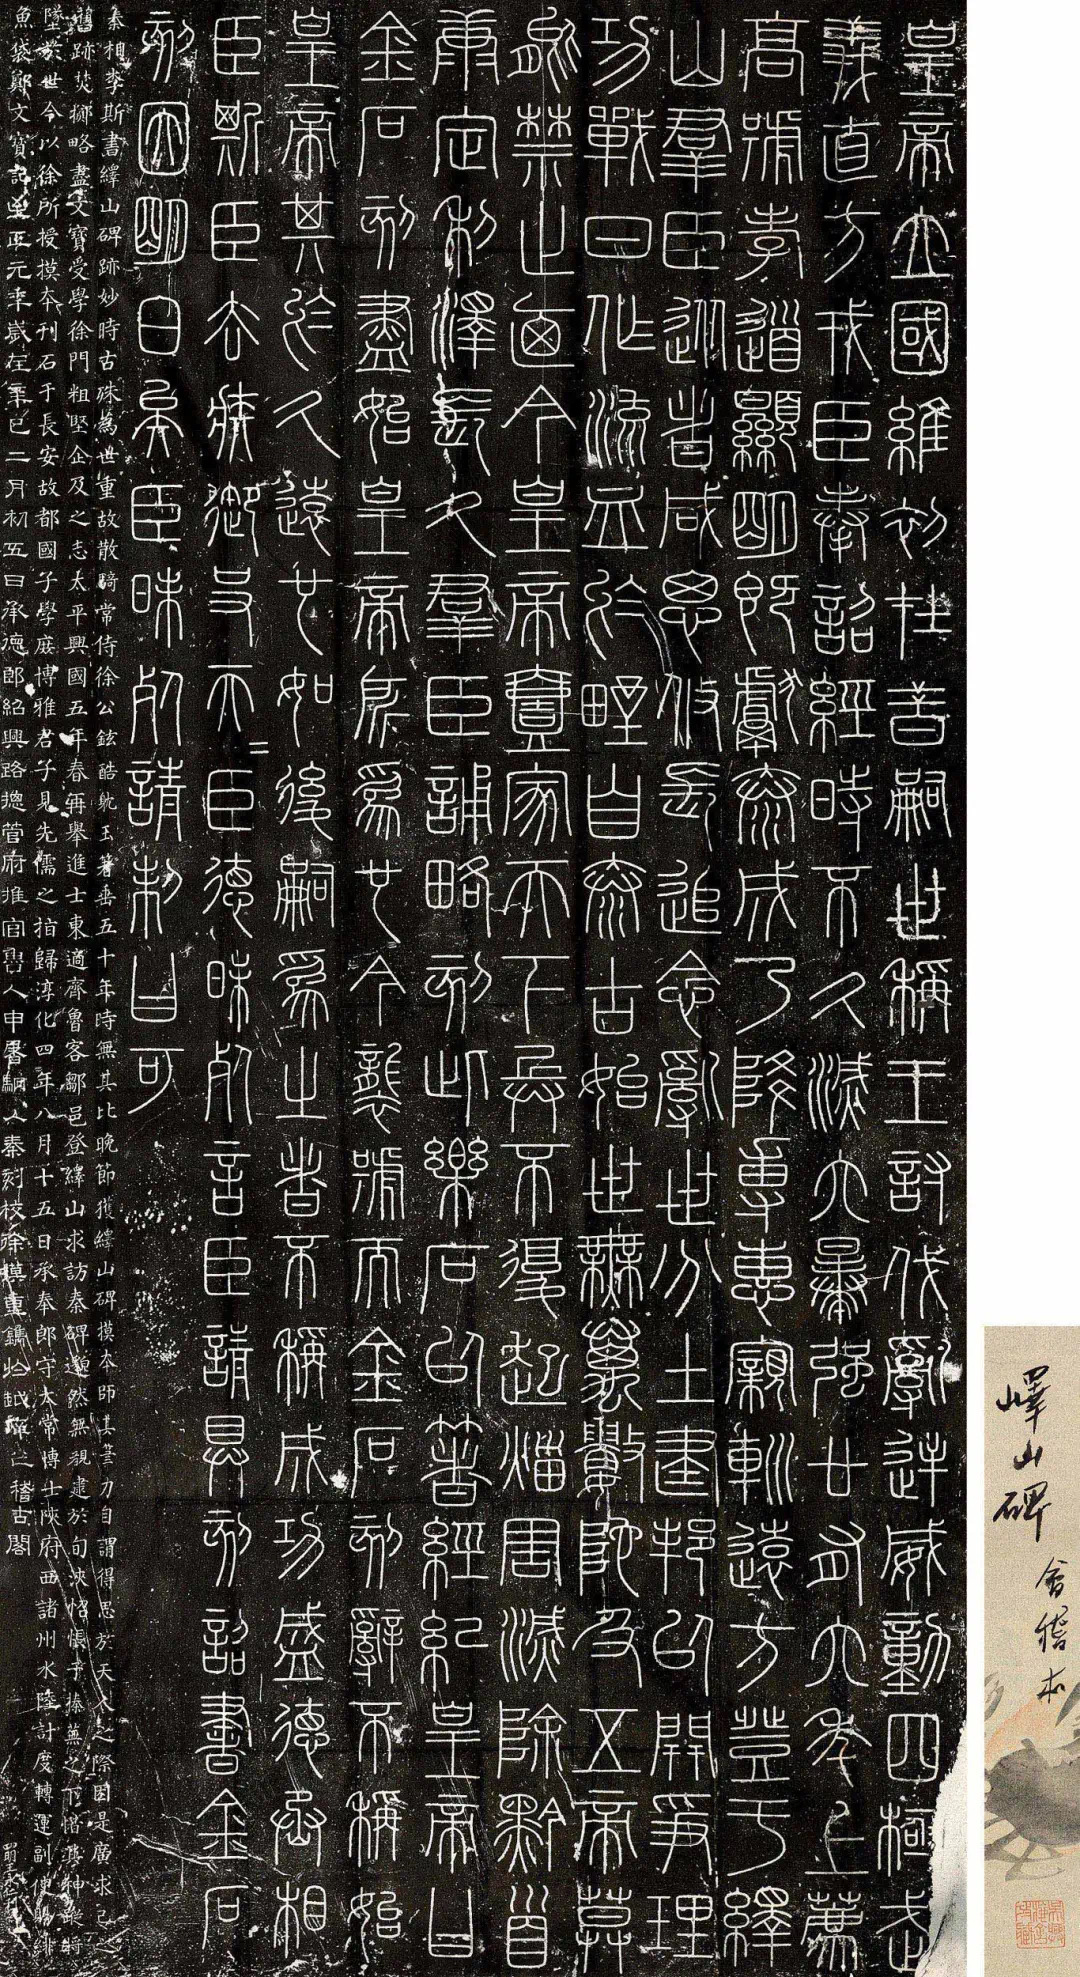 皇帝立國維初在昔嗣世稱王討伐亂逆威動四極武
義直方戎臣奉詔經時不久滅六暴強廿有六年上薦
高號孝道顯明既獻泰成乃降專惠親巡遠方登于繹
山羣臣從者咸思攸長追念亂世分土建邦以開爭理
功戰日作流血於野自泰古始世無萬數陀及五帝莫
能禁止迺今皇帝壹家天下兵不復起災害滅除黔首
康定利澤長久羣臣誦略刻此樂石以著經紀皇帝曰
金石刻盡始皇帝所為也今襲號而金石刻辭不稱始
皇帝其於久遠也如後嗣為之者不稱成功盛德丞相
臣斯臣去疾御史夫=臣德昧死言臣請具刻詔書金石
刻因明白矣臣昧死請制曰可
秦相李斯書繹山碑跡妙時古殊為世重故散騎常侍徐公鉉酷耽玉箸垂五十年時無其比晚節獲繹山碑摸本師其筆力自謂得思於天人之際因是廣求己之
舊跡焚擲略盡文寶受學徐門粗堅企及之志太平興國五年春再舉進士東適齊魯客鄒邑登繹山求訪秦碑邈然無覩逮於旬浹怊悵于榛蕪之下惜其神蹤將
墜於世今以徐所授摸本刊石于長安故都國子學庶博雅君子見先儒之指歸淳化四年八月十五日承奉郎守太常博士陝府西諸州水陸計度轉運副使賜緋
魚袋鄭文寶記至正元年歲在辛巳二月初五日承德郎紹興路總管府推官曹人申屠駉以秦刻校徐摸重鐫於越庠之稽古閣
嶧山碑
會稽本